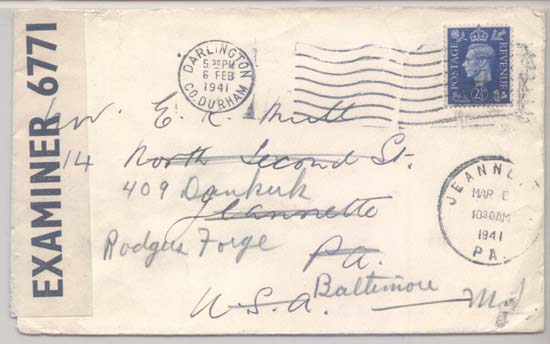 EXAMINER 6771
DARLINGTON
5 30 PM
6 FEB
1941
CO. DURHAM
POSTAGE
REVENUE
2½
E. K.
14 North Second St.
409 Dunkirk
Jeannette
Rodgers Forge
PA.
Baltimore
U.S.A.
Md
JEANNE
MAR
10 30 AM
1941
PA.